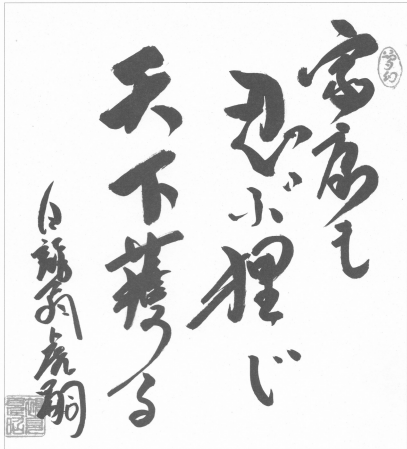 夢幻
家康も
忍ぶ狸じ
天下獲る
白龍翁虎嗣